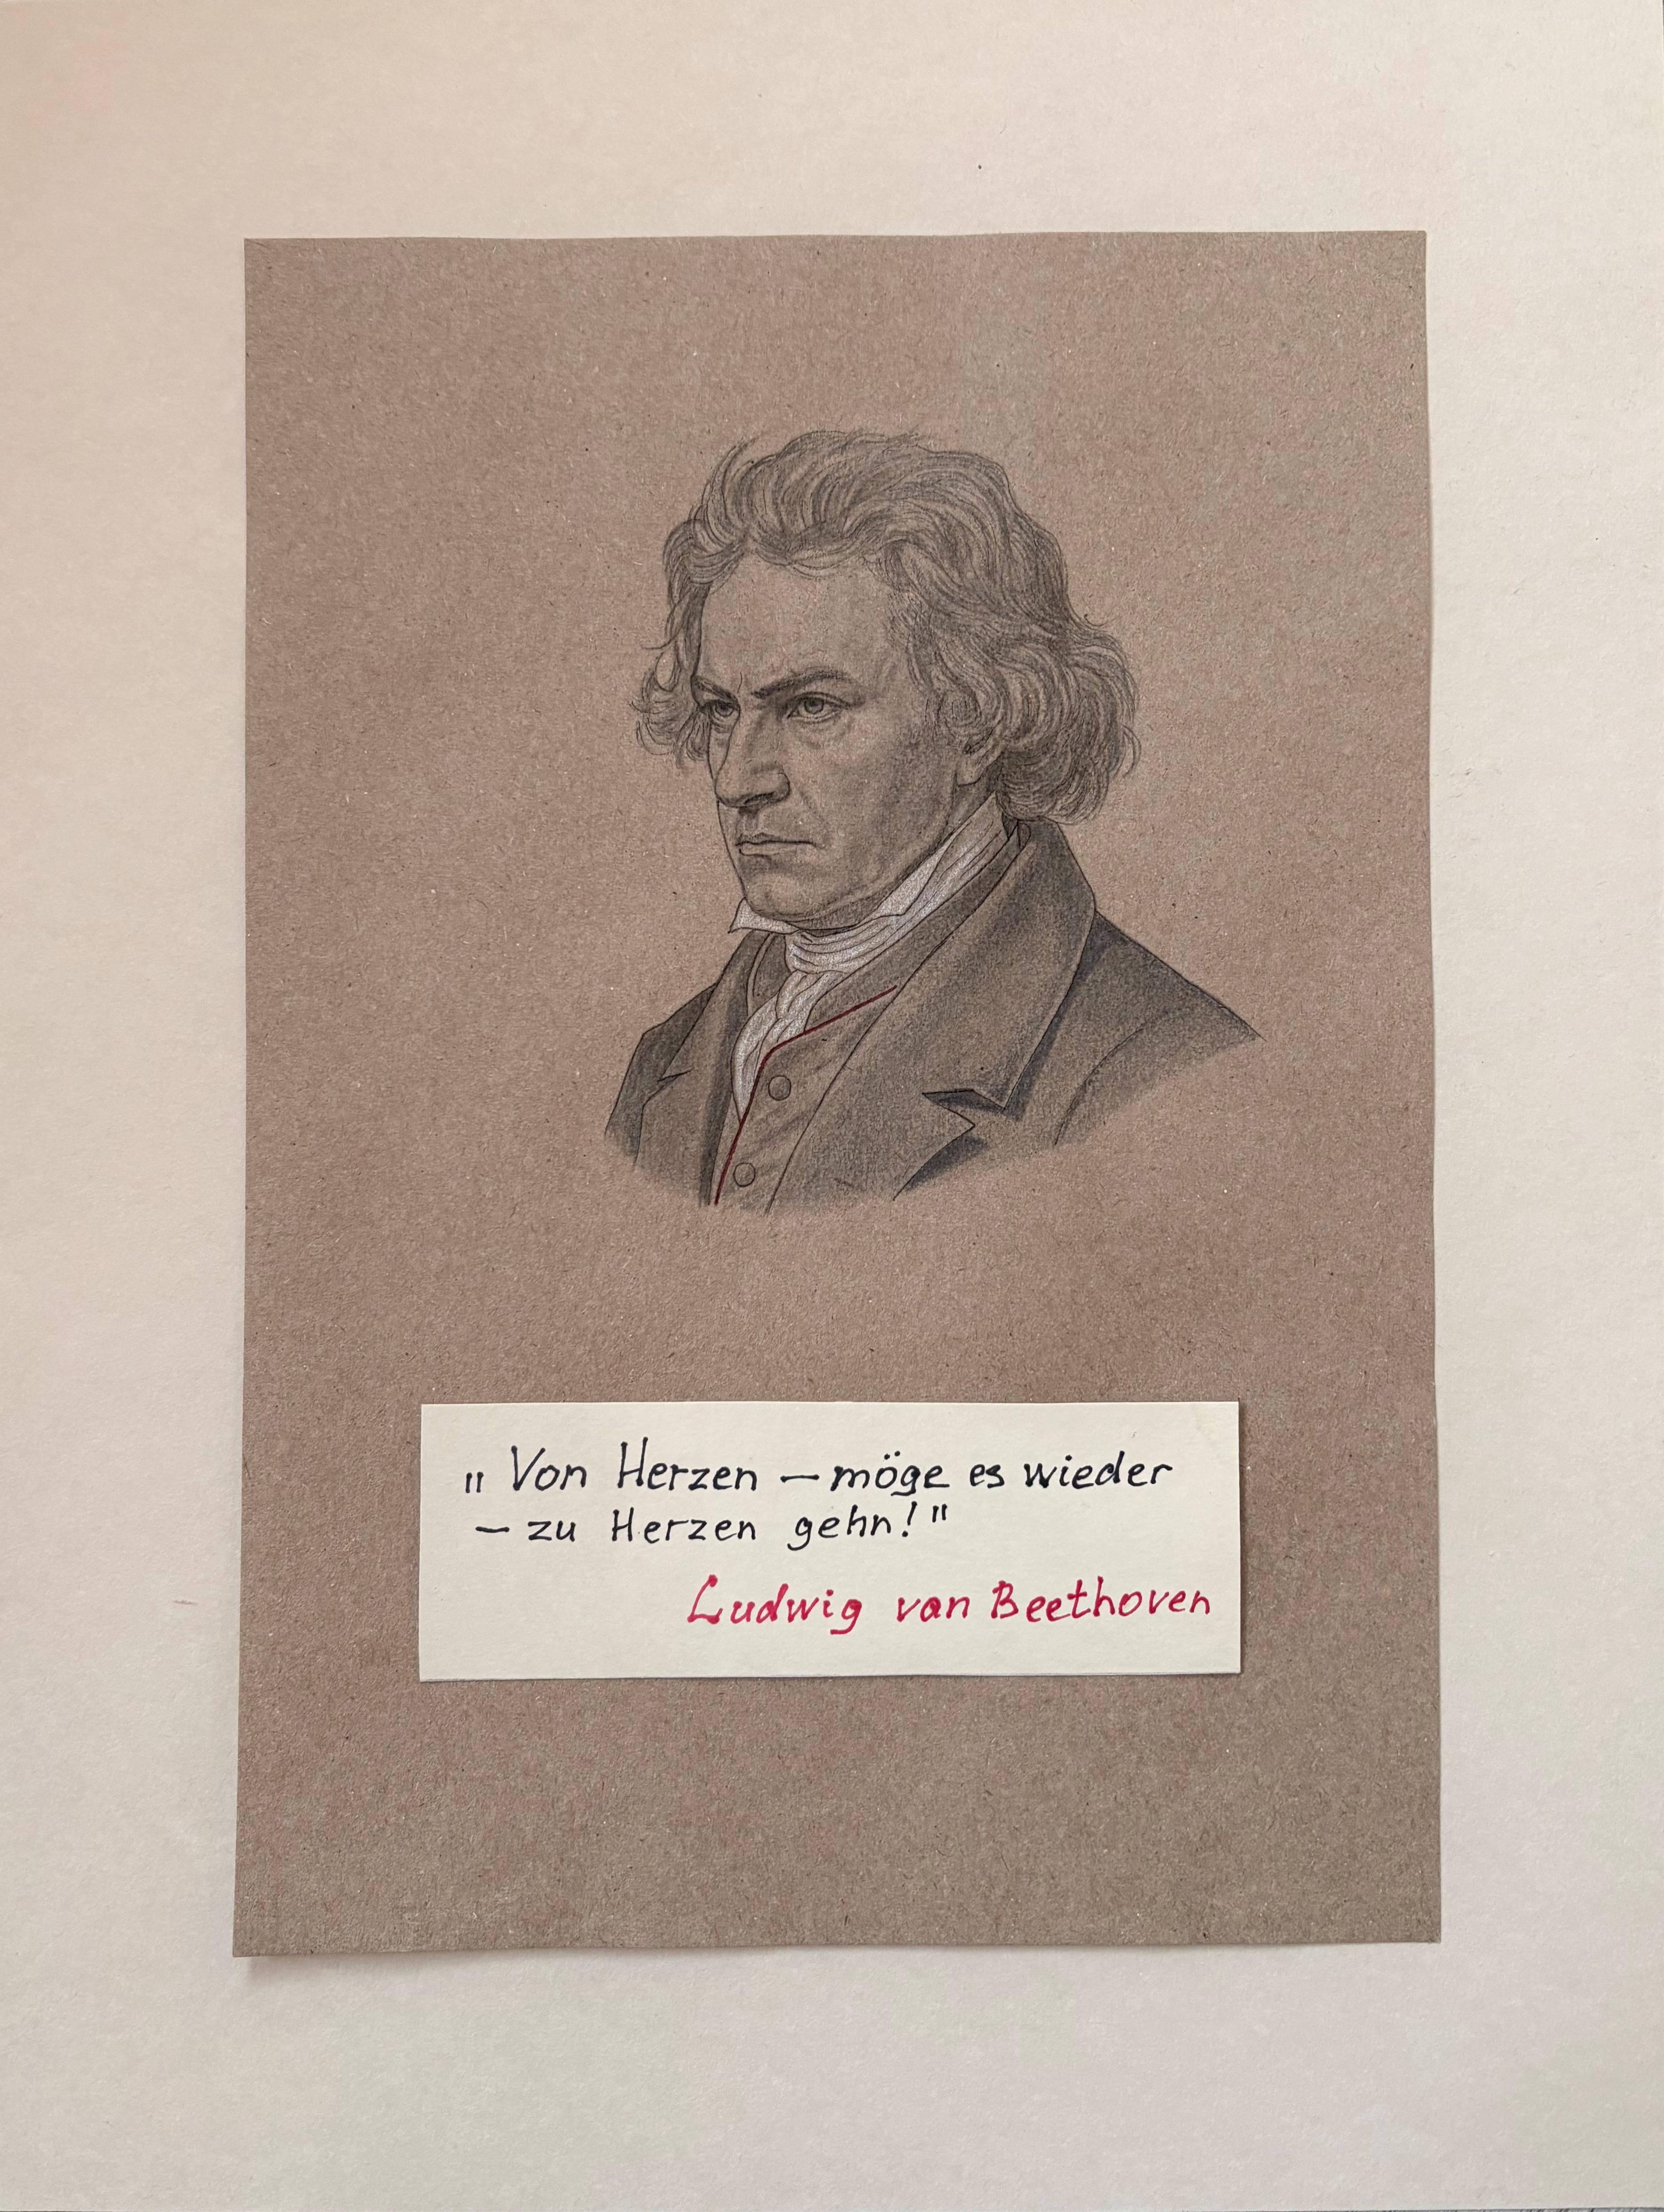 „Von Herzen – möge es wieder
– zu Herzen gehn!"
Ludwig van Beethoven